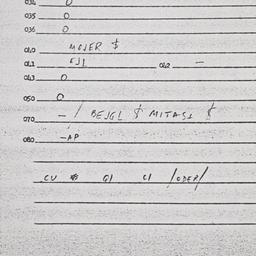 034 0
035 0
036 0
040 MOJER $
041 EJ1 042 —
043 0
050 0
070 — / BEJGL $ MITASI $
080 —AP
CU $ G1 C1 /ODER/